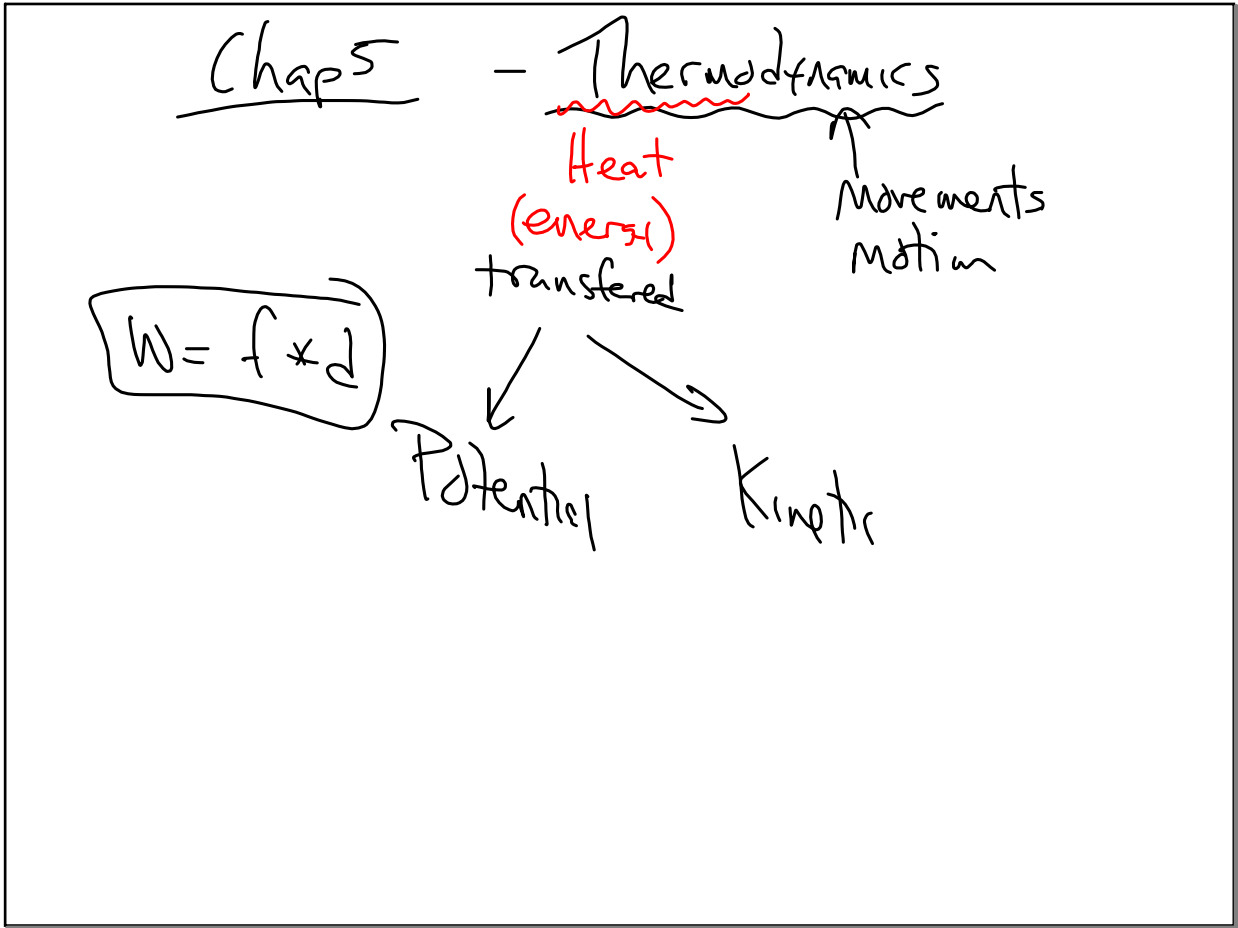 Chap 5 - Thermodynamics
Heat
(energy)
transfered
Movements
Motion
W = f * d
Potential
Kinetic